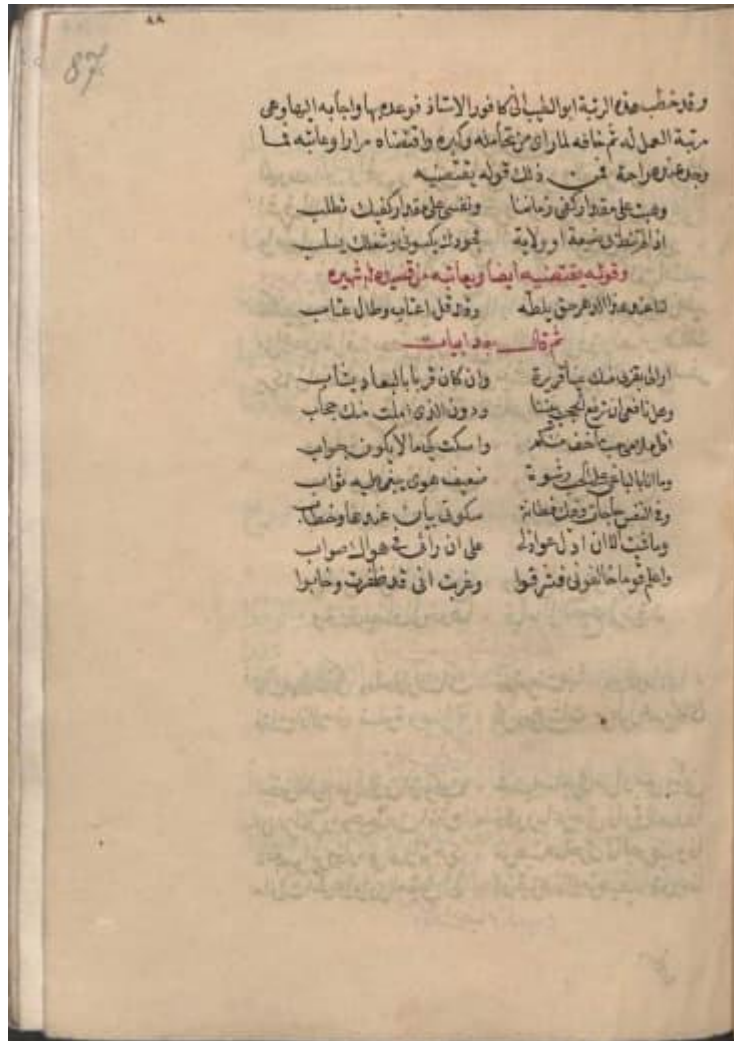 ٨٨
87
وقد خطب هذه الرتبة ابو الطيب الى كافور الاستاذ فوعده بها واجابه اليها وهي
مرتبة العمل له ثم خافه لما راى من تحامله وكبره واقتضاه مرارا وعاتبه فما
وجد عنده راحة فمن ذلك قوله يقتضيه
وهبت على مقدار كفى زماننا ونفسى على مقدار كفيك تطلب
اذا لم تنط بى ضيعة او ولاية فجودك يكسونى وشغلك يسلب
وقوله يقتضيه ايضا ويعاتبه من قصيدة شهيره
لنا عند هذا الدهر حق يلطه وقد قل اعتاب وطال عتاب
ثم قال بعد ابيات
ارى لى بقربى منك عينا قريرة وان كان قربا بالبعاد يشاب
وهل نافعى ان ترفع الحجب بيننا ودون الذى املت منك حجاب
اقل سلامى حب ما خف عنكم واسكت كيما لا يكون جواب
وما انا بالباغى على الحب رشوة ضعيف هوى يبغى عليه ثواب
وفى النفس حاجات وفيك فطانة سكوتى بيان عندها وخطاب
وما شئت الا ان ادل عواذلى على ان رأى فى هواك صواب
واعلم قوما خالفونى فشرقوا وغربت انى قد ظفرت وخابوا